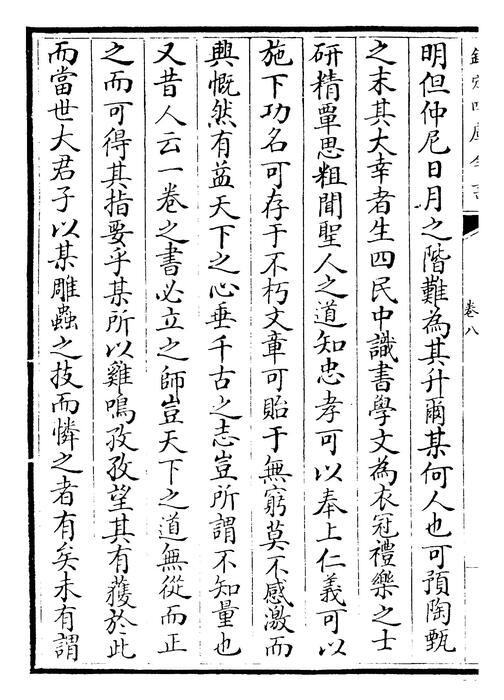 欽定四庫全書
卷八
明但仲尼日月之階難為其升爾某何人也可預陶甄
之末其大幸者生四民中識書學文為衣冠禮樂之士
研精覃思粗聞聖人之道知忠孝可以奉上仁義可以
施下功名可存于不朽文章可貽于無窮莫不感激而
興慨然有益天下之心垂千古之志豈所謂不知量也
又昔人云一卷之書必立之師豈天下之道無從而正
之而可得其指要乎某所以雞鳴孜孜望其有獲於此
而當世大君子以某雕蟲之技而憐之者有矣未有謂